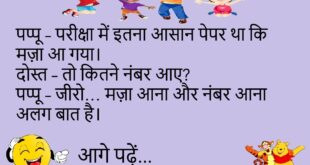 पप्पू – परीक्षा में इतना आसान पेपर था कि
मज़ा आ गया।
दोस्त – तो कितने नंबर आए?
पप्पू – जीरो... मज़ा आना और नंबर आना
अलग बात है।
आगे पढ़ें...